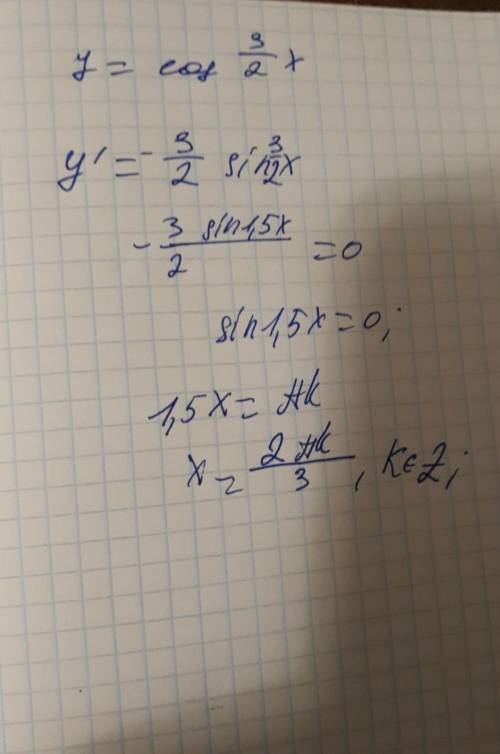 y = cos 3/2 x
y' = - 3/2 sin 3/2 x
- 3 sin1,5x / 2 = 0
sin1,5x = 0;
1,5x = πk
x = 2πk / 3, k∈Z;